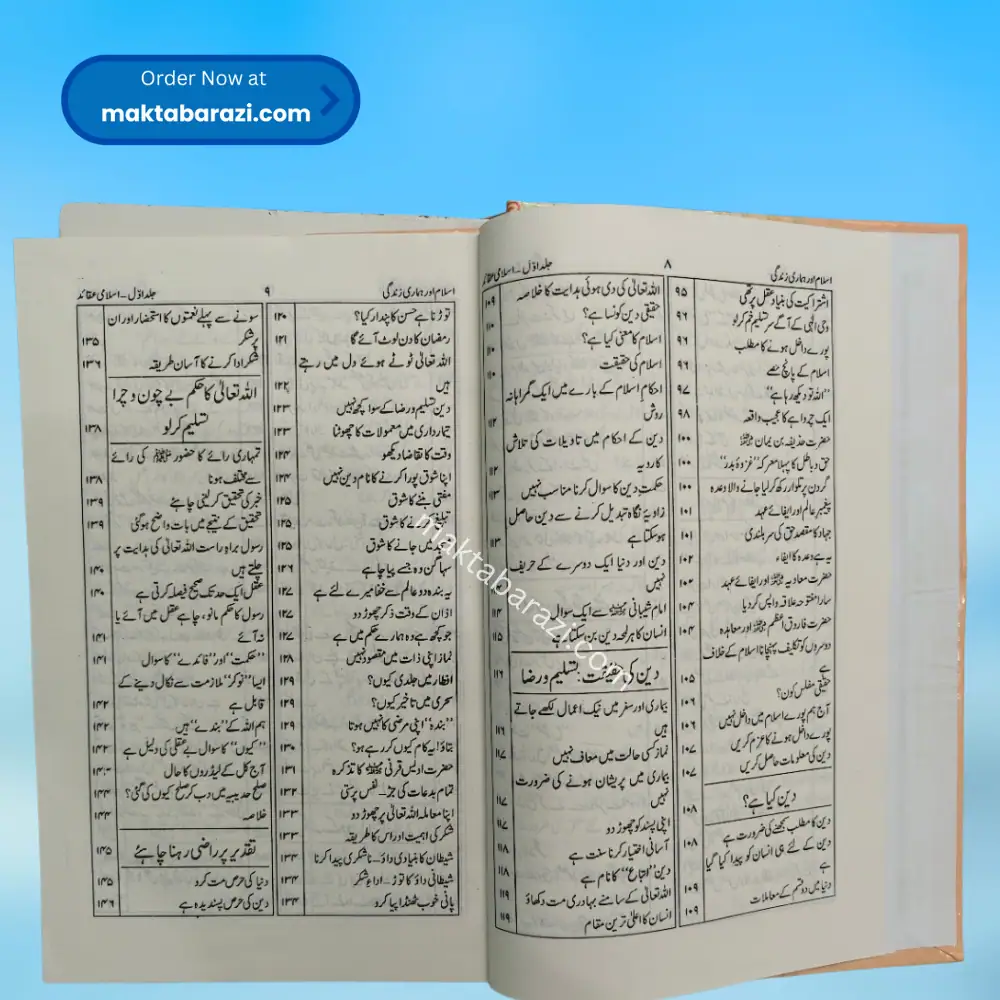 Order Now at
maktabarazi.com
اسلام اور ہماری زندگی
۸
جلد اوّل - اسلامی عقائد
اشتراکیت کی بنیاد عقل پر تھی ۹۵
وحی الٰہی کے آگے سر تسلیم خم کر لو ۹۶
پورے داخل ہونے کا مطلب ۹۶
اسلام کے پانچ حصے ۹۶
"اللہ تو دیکھ رہا ہے" ۹۷
ایک چرواہے کا عجیب واقعہ ۹۸
حضرت حذیفہ بن یمان ؓ ۱۰۰
حق و باطل کا پہلا معرکہ "غزوۂ بدر" ۱۰۰
گردن پر تلوار رکھ کر لیا جانے والا وعدہ ۱۰۰
پیغمبر عالم اور ایفائے عہد ۱۰۱
جہاد کا مقصد حق کی سربلندی ۱۰۱
یہ ہے وعدہ کا ایفاء ۱۰۲
حضرت معاویہ ؓ اور ایفائے عہد ۱۰۲
سارا مفتوحہ علاقہ واپس کر دیا ۱۰۴
حضرت فاروق اعظم ؓ اور معاہدہ ۱۰۴
دوسروں کو تکلیف پہنچانا اسلام کے خلاف
ہے ۱۰۵
حقیقی مفلس کون؟ ۱۰۶
آج ہم پورے اسلام میں داخل نہیں ۱۰۶
پورے داخل ہونے کا عزم کریں ۱۰۷
دین کی معلومات حاصل کریں ۱۰۷
دین کیا ہے؟ ۱۰۸
دین کا مطلب سمجھنے کی ضرورت ہے ۱۰۸
دین کے لئے ہی انسان کو پیدا کیا گیا
ہے ۱۰۹
دنیا میں دو قسم کے معاملات ۱۰۹
اللہ تعالیٰ کی دی ہوئی ہدایت کا خلاصہ ۱۰۹
حقیقی دین کونسا ہے؟ ۱۱۰
اسلام کا معنی کیا ہے؟ ۱۱۰
اسلام کی حقیقت ۱۱۰
احکامِ اسلام کے بارے میں ایک گمراہانہ
روش ۱۱۲
دین کے احکام میں تاویلات کی تلاش
کا رویہ ۱۱۲
حکمتِ دین کا سوال کرنا مناسب نہیں ۱۱۳
زاویۂ نگاہ تبدیل کرنے سے دین حاصل
ہو سکتا ہے ۱۱۳
دین اور دنیا ایک دوسرے کے حریف
نہیں
امام شیبانی ؒ سے ایک سوال ۱۱۴
انسان کا ہر لمحہ دین بن سکتا ہے ۱۱۵
دین کی حقیقت: تسلیم و رضا ۱۱۶
بیماری اور سفر میں نیک اعمال لکھے جاتے
ہیں ۱۱۶
نماز کسی حالت میں معاف نہیں ۱۱۷
بیماری میں پریشان ہونے کی ضرورت
نہیں ۱۱۷
اپنی پسند کو چھوڑ دو ۱۱۷
آسانی اختیار کرنا سنت ہے ۱۱۸
دین "اتباع" کا نام ہے ۱۱۸
اللہ تعالیٰ کے سامنے بہادری مت دکھاؤ ۱۱۹
انسان کا اعلیٰ ترین مقام ۱۱۹
اسلام اور ہماری زندگی
۹
جلد اوّل - اسلامی عقائد
توڑنا ہے حسن کا پندار کیا؟ ۱۲۰
رمضان کا دن لوٹ آئے گا ۱۲۱
اللہ تعالیٰ ٹوٹے ہوئے دل میں رہتے
ہیں ۱۲۲
دین تسلیم و رضا کے سوا کچھ نہیں ۱۲۳
تیمارداری میں معمولات کا چھوٹنا ۱۲۳
وقت کا تقاضا دیکھو ۱۲۴
اپنا شوق پورا کرنے کا نام دین نہیں ۱۲۴
مفتی بننے کا شوق ۱۲۵
تبلیغ کرنے کا شوق ۱۲۵
میں جانے کا شوق ۱۲۵
سہاگن وہ جسے پیا چاہے ۱۲۶
یہ بندہ دو عالم سے خفا میرے لئے ہے ۱۲۷
اذان کے وقت ذکر چھوڑ دو ۱۲۷
جو کچھ ہے وہ ہمارے حکم میں ہے ۱۲۷
نماز اپنی ذات میں مقصود نہیں ۱۲۸
افطار میں جلدی کیوں؟ ۱۲۸
سحری میں تاخیر کیوں؟ ۱۲۹
"بندہ" اپنی مرضی کا نہیں ہوتا ۱۲۹
بتاؤ! یہ کام کیوں کر رہے ہو؟ ۱۳۰
حضرت اویس قرنی ؒ کا تذکرہ ۱۳۱
تمام بدعات کی جڑ۔ نفس پرستی ۱۳۲
اپنا معاملہ اللہ تعالیٰ پر چھوڑ دو ۱۳۳
شکر کی اہمیت اور اس کا طریقہ ۱۳۳
شیطان کا بنیادی داؤ۔ ناشکری پیدا کرنا ۱۳۴
شیطانی داؤ کا توڑ۔ اداءِ شکر ۱۳۴
پانی خوب ٹھنڈا پیا کرو ۱۳۴
سونے سے پہلے نعمتوں کا استحضار اور ان
پر شکر ۱۳۵
شکر ادا کرنے کا آسان طریقہ ۱۳۶
اللہ تعالیٰ کا حکم بے چون و چرا
تسلیم کر لو ۱۳۸
تمہاری رائے کا حضور ﷺ کی رائے
سے مختلف ہونا ۱۳۸
خبر کی تحقیق کر لینی چاہئے ۱۳۹
تحقیق کے نتیجے میں بات واضح ہو گئی ۱۳۹
رسول براہِ راست اللہ تعالیٰ کی ہدایت پر
چلتے ہیں ۱۴۰
عقل ایک حد تک صحیح فیصلہ کرتی ہے ۱۴۰
رسول کا حکم مانو، چاہے عقل میں آئے یا
نہ آئے ۱۴۱
"حکمت" اور "فائدے" کا سوال ۱۴۱
ایسا "نوکر" ملازمت سے نکال دینے کے
قابل ہے ۱۴۲
ہم اللہ کے "بندے" ہیں ۱۴۲
"کیوں" کا سوال بے عقلی کی دلیل ہے ۱۴۲
آج کل کے لیڈروں کا حال ۱۴۳
صلح حدیبیہ میں دب کر صلح کیوں کی گئی؟ ۱۴۴
خلاصہ ۱۴۴
تقدیر پر راضی رہنا چاہئے ۱۴۵
دنیا کی حرص مت کرو ۱۴۵
دین کی حرص پسندیدہ ہے ۱۴۶
maktabarazi.com